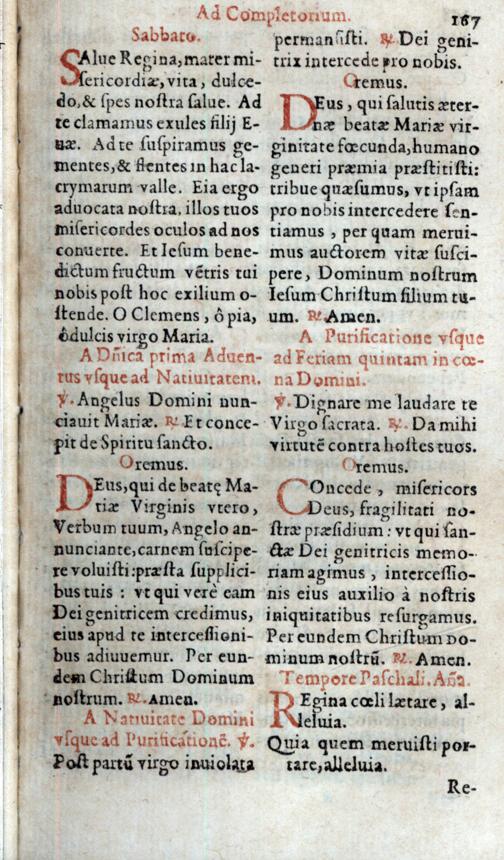 Ad Completorium.
167
Sabbato.
SAlue Regina, mater mi-
ſericordiæ, vita, dulce-
do, & ſpes noſtra ſalue. Ad
te clamamus exules filij E-
uæ. Ad te ſuſpiramus ge-
mentes, & flentes in hac la-
crymarum valle. Eia ergo
aduocata noſtra, illos tuos
miſericordes oculos ad nos
conuerte. Et Ieſum bene-
dictum fructum vẽtris tui
nobis poſt hoc exilium o-
ſtende. O Clemens, ô pia,
ô dulcis virgo Maria.
A Dñica prima Aduen-
tus vſque ad Natiuitatem.
℣. Angelus Domini nun-
ciauit Mariæ. ℟. Et conce-
pit de Spiritu ſancto.
Oremus.
DEus, qui de beatę Ma-
riæ Virginis vtero,
Verbum tuum, Angelo an-
nunciante, carnem ſuſcipe-
re voluiſti: præſta ſupplici-
bus tuis : vt qui verè eam
Dei genitricem credimus,
eius apud te interceſſioni-
bus adiuuemur. Per eun-
dem Chriſtum Dominum
noſtrum. ℟. Amen.
A Natiuitate Domini
vſque ad Purificationẽ. ℣.
Poſt partũ virgo inuiolata
permanſiſti. ℟. Dei geni-
trix intercede pro nobis.
Oremus.
DEus, qui ſalutis æter-
næ beatæ Mariæ vir-
ginitate fœcunda, humano
generi præmia præſtitiſti:
tribue quæſumus, vt ipſam
pro nobis intercedere ſen-
tiamus, per quam merui-
mus auctorem vitæ ſuſci-
pere, Dominum noſtrum
Ieſum Chriſtum filium tu-
um. ℟. Amen.
A Purificatione vſque
ad Feriam quintam in cœ-
na Domini.
℣. Dignare me laudare te
Virgo ſacrata. ℟. Da mihi
virtutẽ contra hoſtes tuos.
Oremus.
COncede, miſericors
Deus, fragilitati no-
ſtræ præſidium : vt qui ſan-
ctæ Dei genitricis memo-
riam agimus, interceſſio-
nis eius auxilio à noſtris
iniquitatibus reſurgamus.
Per eundem Chriſtum Do-
minum noſtrũ. ℟. Amen.
Tempore Paſchali. Añã.
REgina cœli lætare, al-
leluia.
Quia quem meruiſti por-
tare, alleluia.
Re-